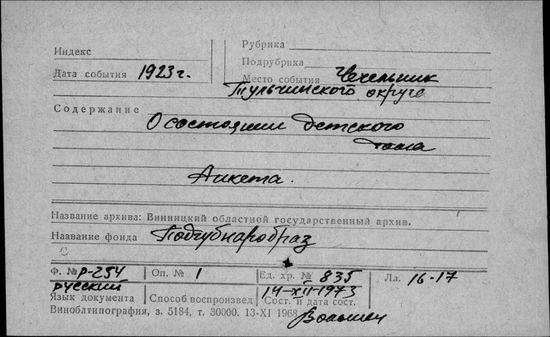 Индекс
Рубрика
Подрубрика
Дата события 1923 г.
Место события Чечельник
Тульчинского округа
Содержание
О состоянии детского
дома
Анкета.
Название архива: Винницкий областной государственный архив.
Название фонда Подгубнаробраз
Ф. № р-254 Оп. № 1 Ед. хр. № 835 Лл. 16-17
русский 14-XII-1973
Язык документа Способ воспроизвед. Сост. и дата сост.
Виноблтипография, з. 5184, т. 30000. 13-XI 1968